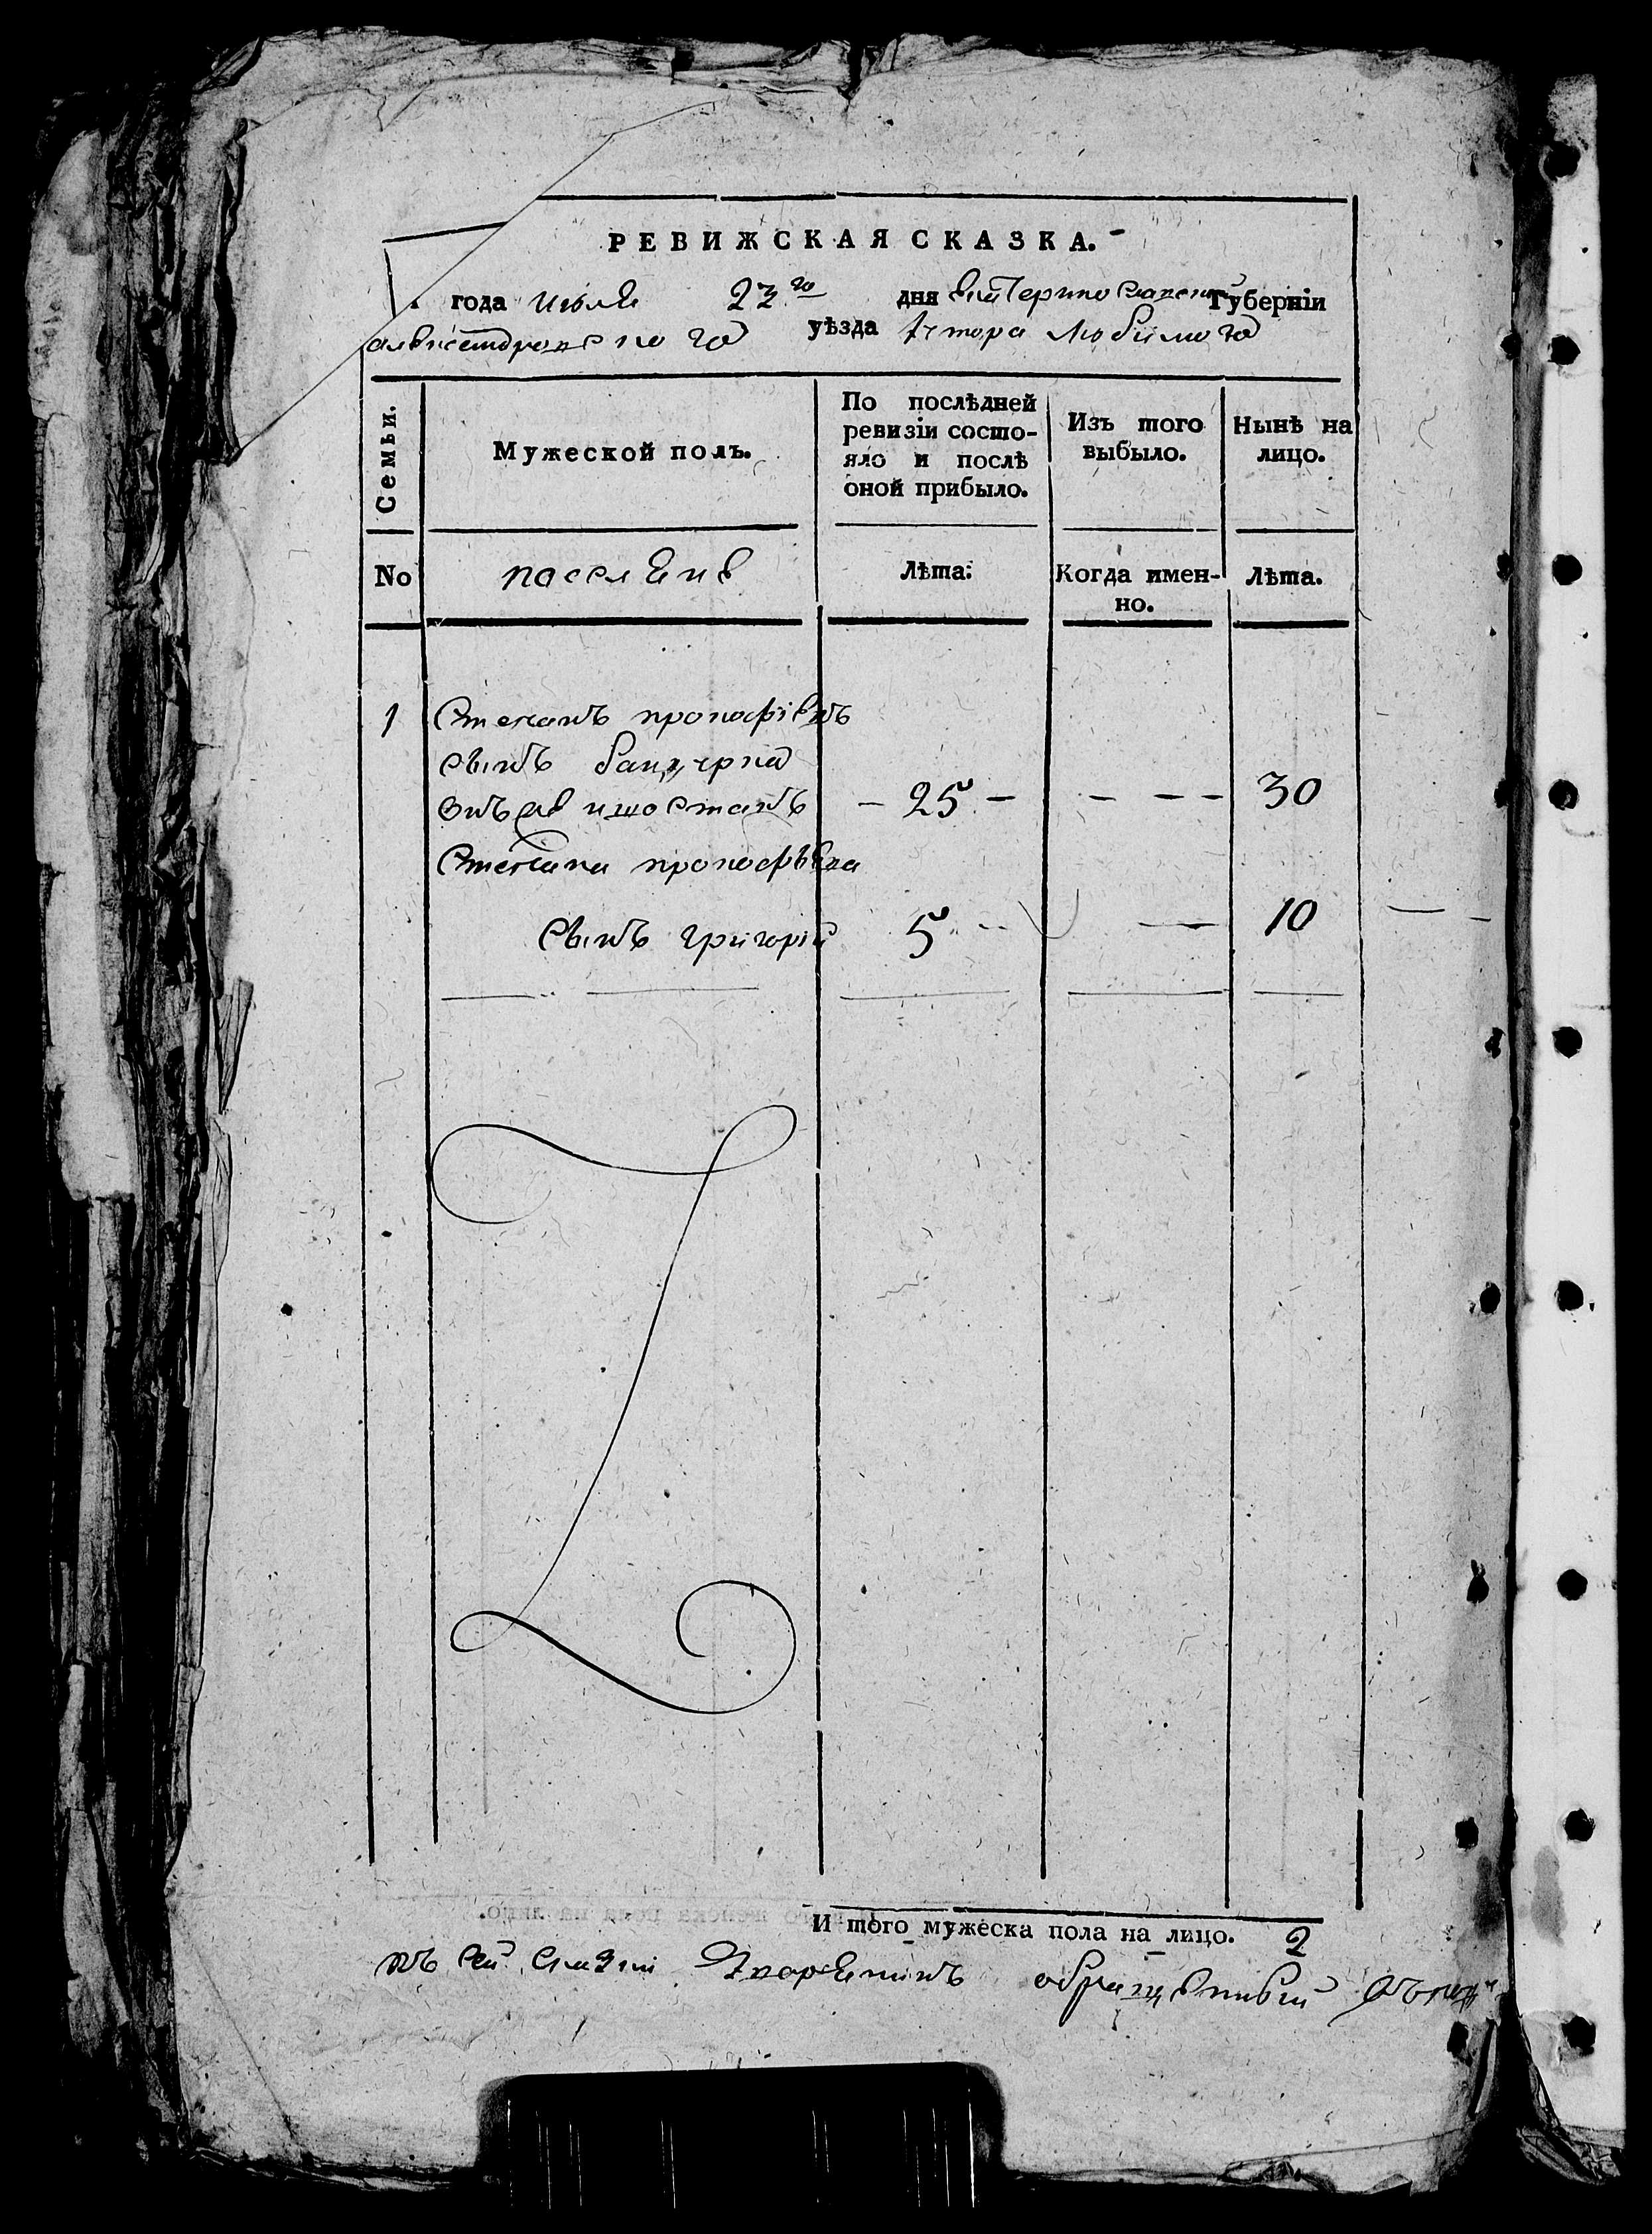 РЕВИЖСКАЯ СКАЗКА.
года июля 23го дня екатеринославской Губерніи
александровского уѣзда хутора Любимого
Семьи.
Мужеской полъ.
По послѣдней ревизіи состо-
яло и послѣ
оной прибыло.
Изъ того
выбыло.
Нынѣ на
лицо.
No
поселяне
Лѣта:
Когда имен-
но.
Лѣта.
1 Степанъ прокофіевъ
сынъ
25 30
Степана прокофьева
сынъ григорій 5 10
И того мужеска пола на лицо. 2
къ сей скаски